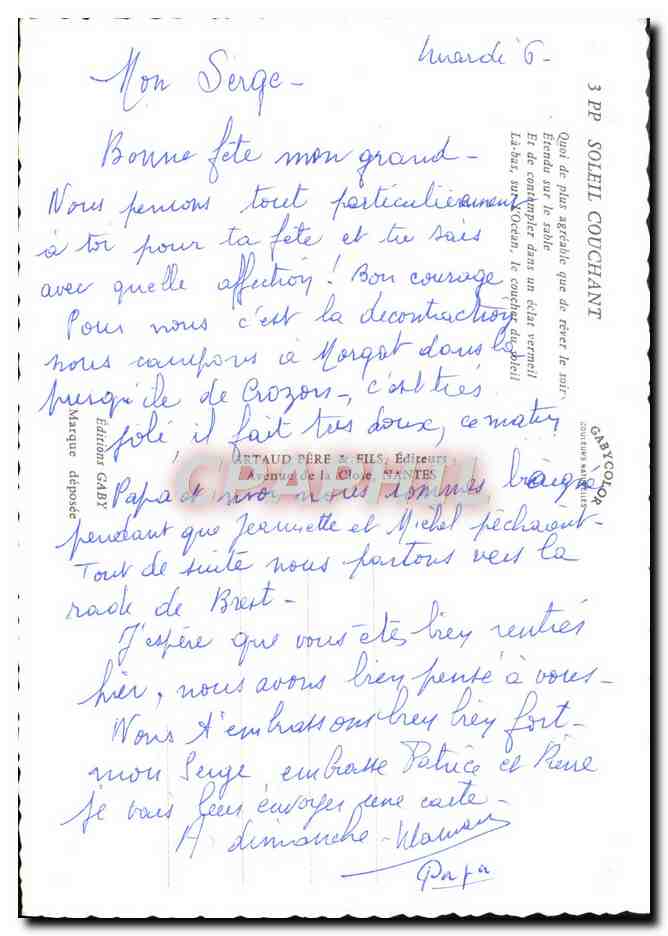 mardi 6-
Mon Serge-
Bonne fête mon grand-
Nous pensons tout particulièrement
à toi pour ta fête et tu sais
avec quelle affection! Bon courage
Pour nous c'est la décontraction
nous campons à Morgat dans la
presqu'ile de Crozon-, c'est très
joli, il fait très doux, ce matin
Papa et moi nous sommes baigné
pendant que Jeannette et Michel pêchaient-
Tout de suite nous partons vers la
rade de Brest-
J'espère que vous êtes bien rentrés
hier, nous avons bien pensé à vous-
Nous t'embrassons bien bien fort-
mon Serge, embrasse Patrice et
je vais leur envoyer une carte-
A dimanche- Maman
Papa
3 PP SOLEIL COUCHANT
Quoi de plus agréable que de rêver le soir
Étendu sur le sable
Et de contempler dans un éclat vermeil
Là-bas, sur l'Océan, le coucher du soleil
GABYCOLOR
COULEURS NATURELLES
ARTAUD PÈRE & FILS, Éditeurs
Avenue de la Close, NANTES
Éditions GABY
Marque déposée
CPARAMA